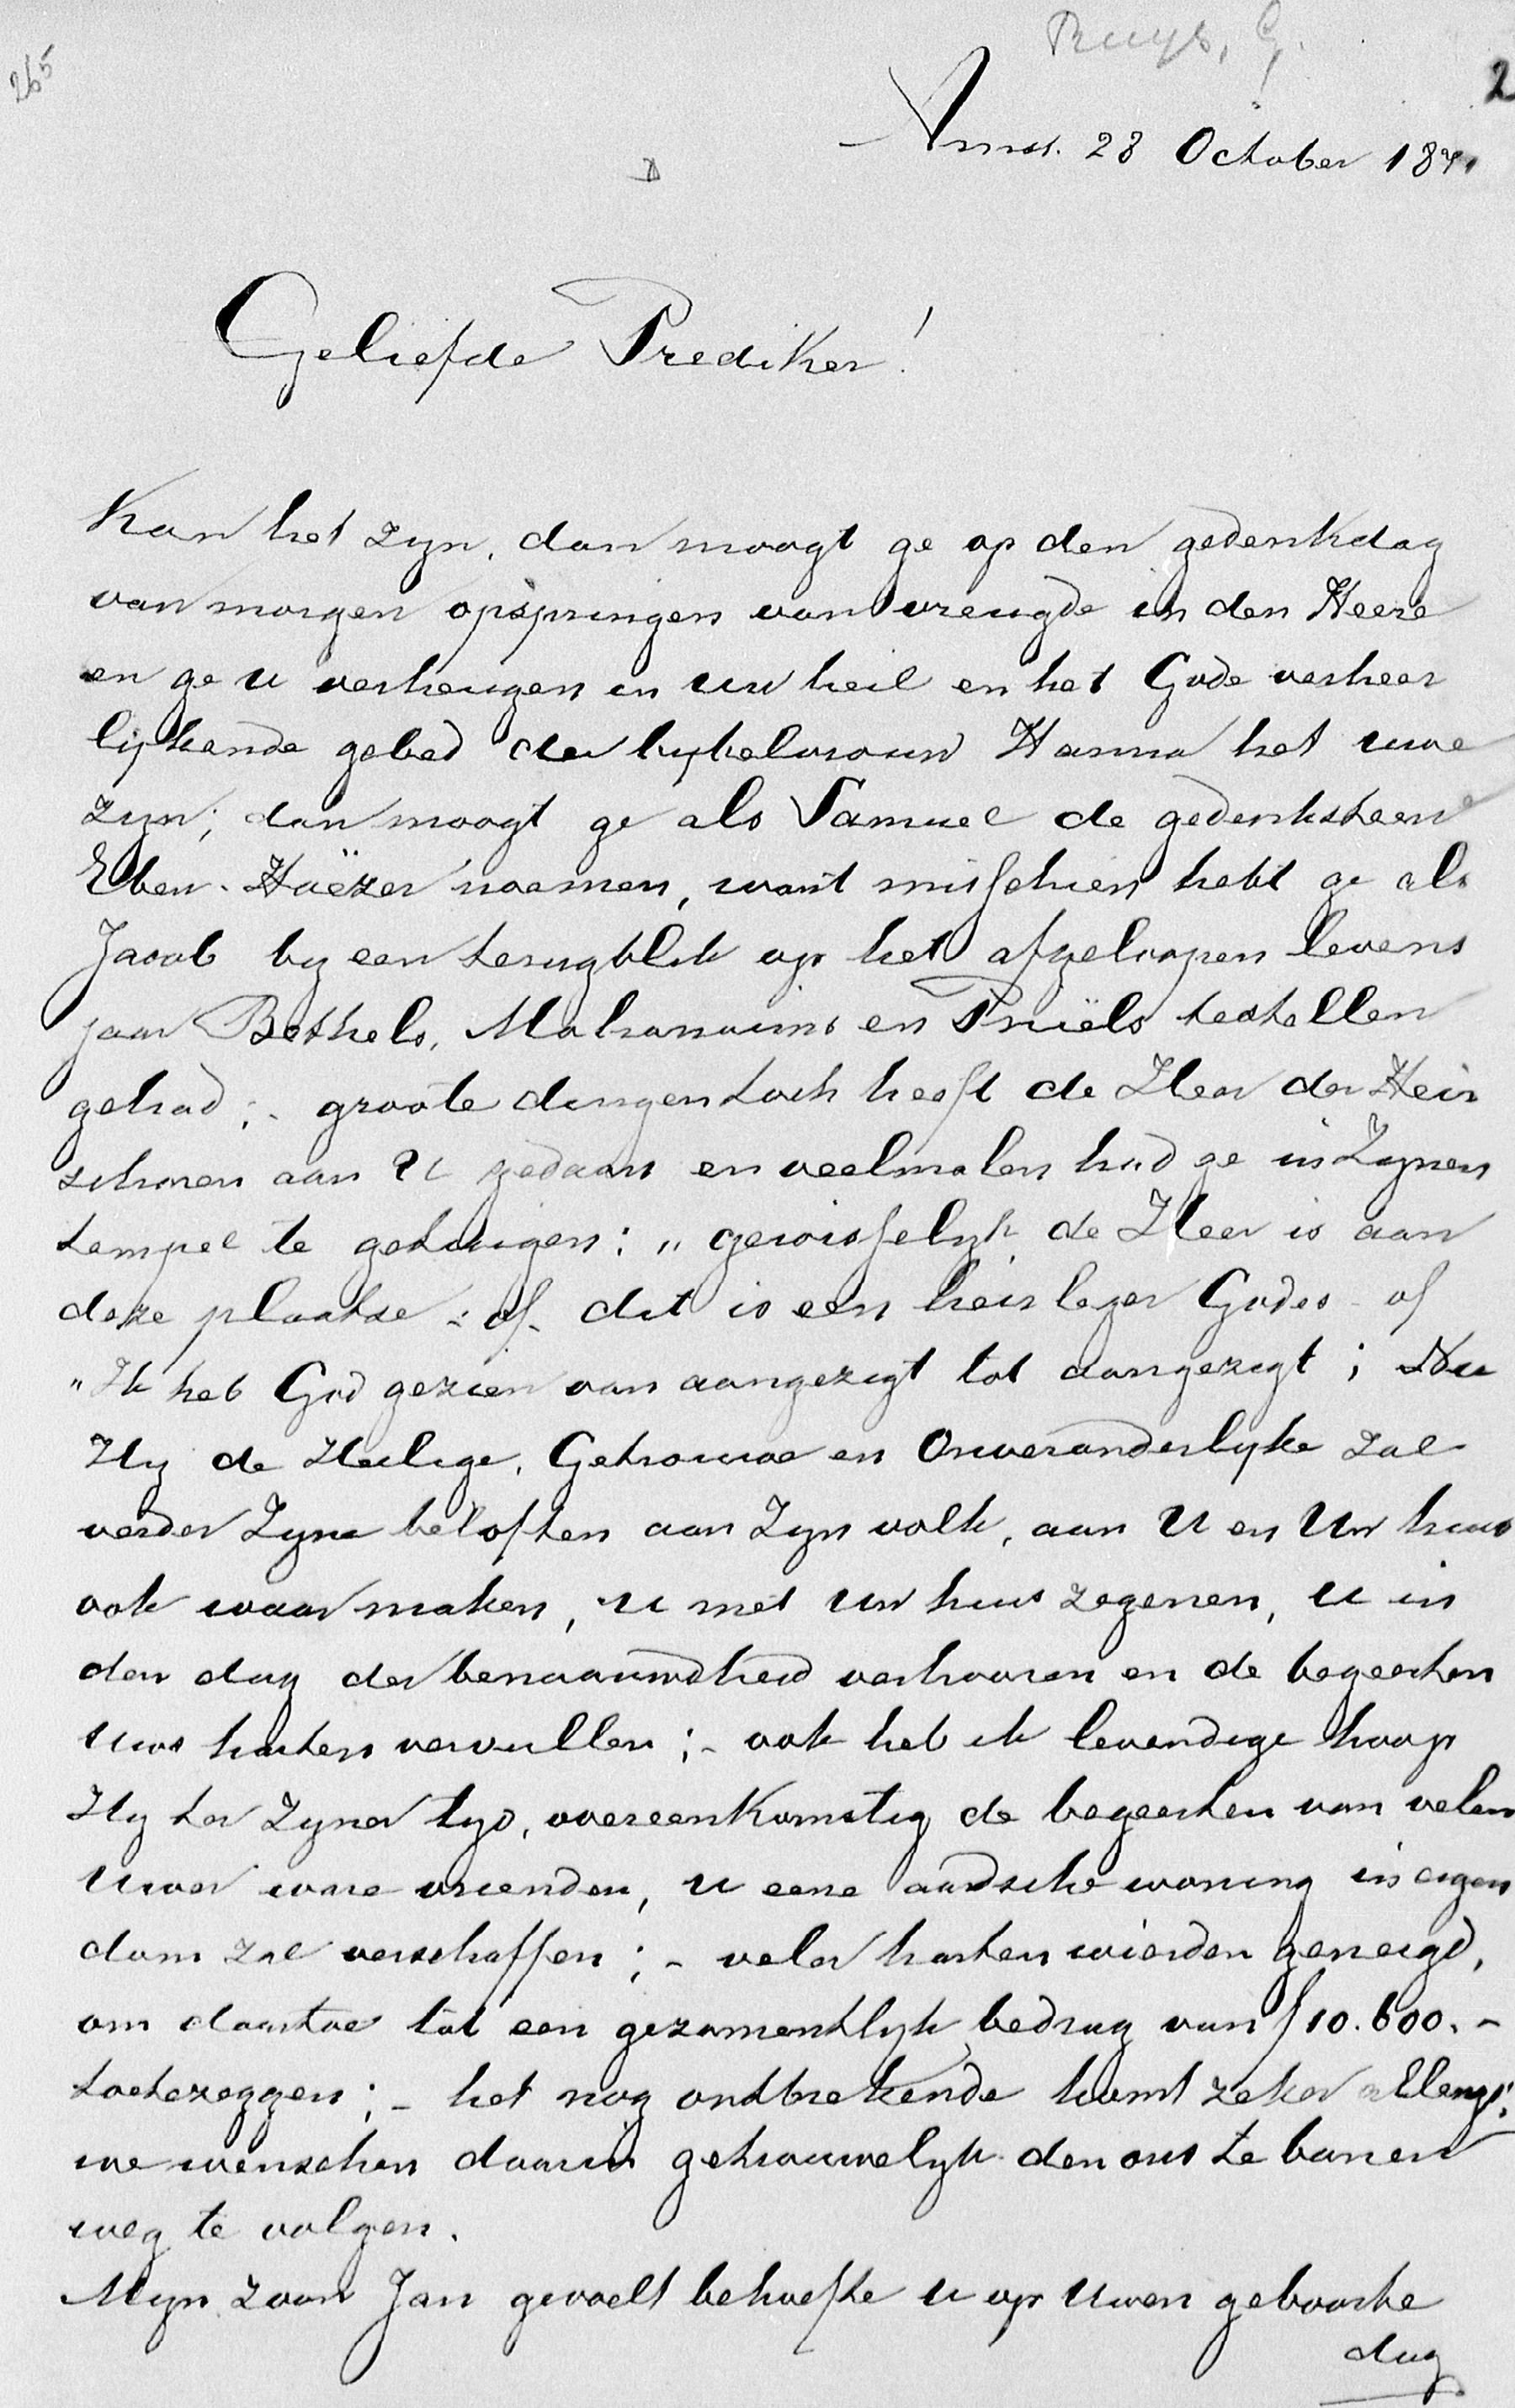 Ruys, G.
265
2
Amst. 28 October 187
Geliefde Prediker!
Kan het zyn, dan moogt ge op den gedenkdag
van morgen opspringen van vreugde in den Heere
en ge u verheugen in uw heil en het Gode verheer
lijkende gebed der bybelvrouw Hanna het uwe
zyn; dan moogt ge als Samuel de gedenksteen
Eben-Haëzer noemen, want misschien hebt ge als
Jacob by een terugblik op het afgeloopen levens
jaar Bethels, Mahanaims en Pniëls testellen
gehad;- groote dingen toch heeft de Heer der Heir
scharen aan U gedaan en veelmalen had ge in Zynen
tempel te getuigen: „gewisselyk de Heer is aan
deze plaatse - of - dit is een heirleger Godes - of
„Ik heb God gezien van aangezigt tot aangezigt; Nu
Hy de Heilige, Getrouwe en Onveranderlyke zal
verder Zyne beloften aan Zyn volk, aan U en Uw huis
ook waarmaken, u met uw huis zegenen, u in
den dag der benaauwdheid verhooren en de begeerten
uws harten vervullen;- ook heb ik levendige hoop
Hy ter Zyner tyd, overeenkomstig de begeerten van velen
uwer ware vrienden, u eene aardsche woning in eigen
dom zal verschaffen;- veler harten wierden geneigd,
om daartoe tot een gezamentlyk bedrag van f 10.600.-
toetezeggen;- het nog ontbrekende komt zeker allengs;
we wenschen daarin getrouwelyk den ons te banen
weg te volgen.
Myn zoon Jan gevoelt behoefte u op uwen geboorte
dag